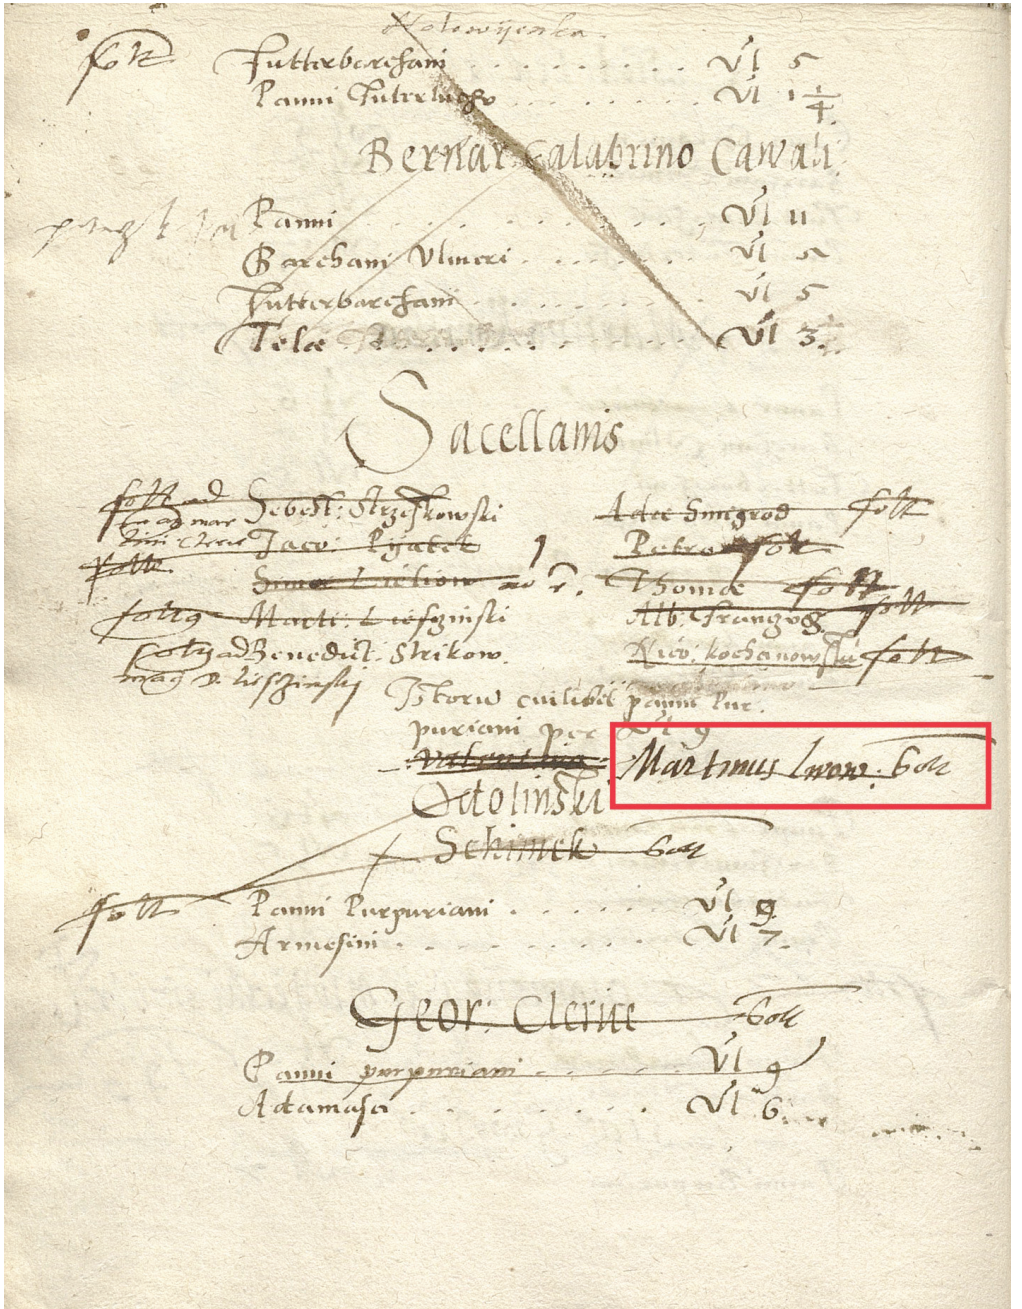 Holowijenka.
solt Futterbarchani . . . . . . . . . . Ul 5
Panni Futerlucho . . . . . . . . Ul 1 1/4
Bernar Calabrino Cawali
Panni . . . . . . . . . . . Ul 11
Barchani Ulmeri . . . . . . . Ul
Futterbarchani . . . . . . . . . Ul 5
Telæ . . . . . . . . . . Ul 3
Sacellanis
solt ad Sebest: Strzeskowski
Jaco: Pijatek
solt
solt Marti: Lieszinski
solt ad Benedict: Strikow.
mag D. Lieszinski
Adæ Smigrod solt
Petro solt
Thomæ solt
Alb: Franzog. solt
Nico: Kochanowski solt
Istorū cuilibet panni Pur.
puriani per Ul 9
Martinus Lwow. solt
Octolinski
Schimek solt
solt Panni Purpuriani . . . . . . Ul 9
Armesini . . . . . . . . . Ul 7.
Geor: Clerice solt
Panni purpuriani . . . . . Ul 9
Adamasci . . . . . . . . Ul 6